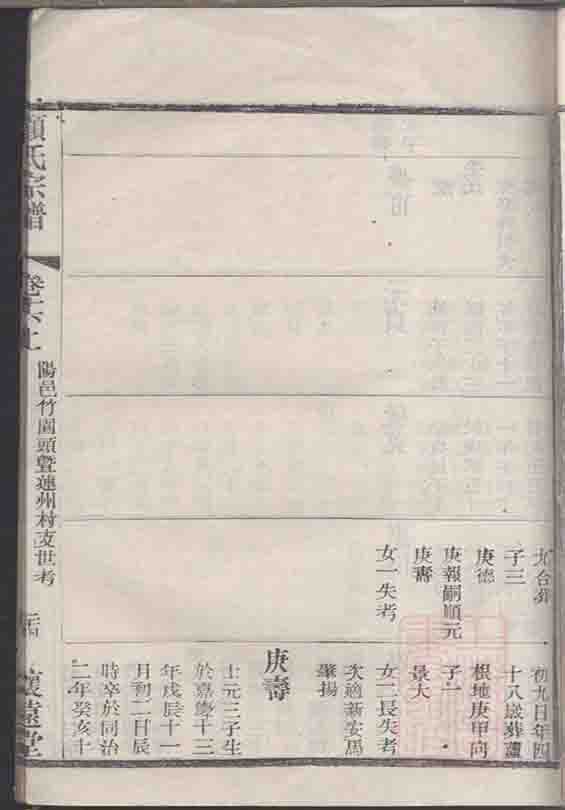 尤合葬
子三
庚德
庚報嗣順元
庚壽
女一失考
初九日年四
十八歲葬蘆
根地庚甲向
子一
景大
女二長失考
次適新安馬
肇揚
庚壽
士元三子生
於嘉慶十三
年戊辰十一
月初二日辰
時卒於同治
二年癸亥十
顧氏宗譜
卷十六上
陽邑竹園頭暨蓮州村支世考
懷遠堂